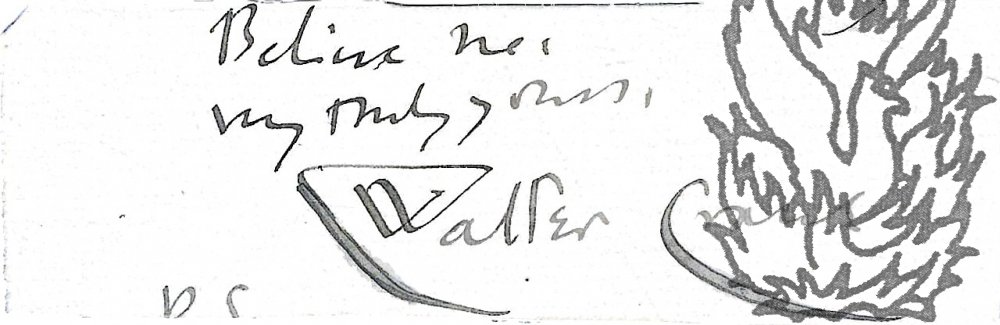 Believe me.
very truly yours.
Walter Crane
P.S.